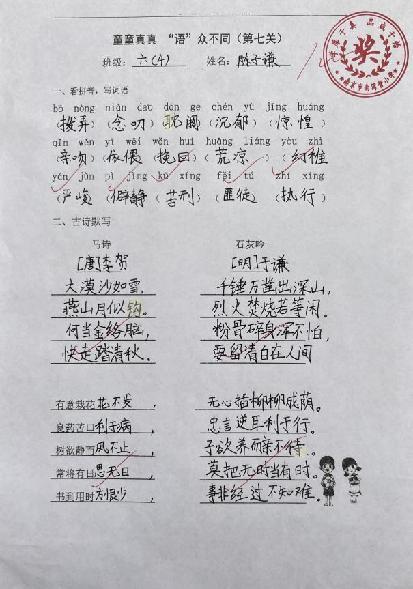 童童真真 “语”众不同（第七关）
班级：六(4) 姓名：陈子谦
一、看拼音，写词语
bō nòng niàn dao dān ge chén yù jīng huáng
（拨弄）（念叨）（耽阁）（沉郁）（惊惶）
qīn wěn yī wēi wǎn huí huāng liáng yòu zhì
（亲吻）（依偎）（挽回）（荒凉）（幼稚）
yán jùn pì jìng kǔ xíng fěi tú zhí xíng
（严峻）（僻静）（苦刑）（匪徒）（执行）
二、古诗默写
马诗 石灰吟
[唐]李贺 [明]于谦
大漠沙如雪， 千锤万凿出深山，
燕山月似钩。 烈火焚烧若等闲。
何当金络脑， 粉骨碎身浑不怕，
快走踏清秋。 要留清白在人间
有意栽花花不发， 无心插柳柳成荫。
良药苦口利于病， 忠言逆耳利于行。
树欲静而风不止， 子欲养而亲不待。
常将有日思无日， 莫把无时当有时。
书到用时方恨少， 事非经过不知难。
奖